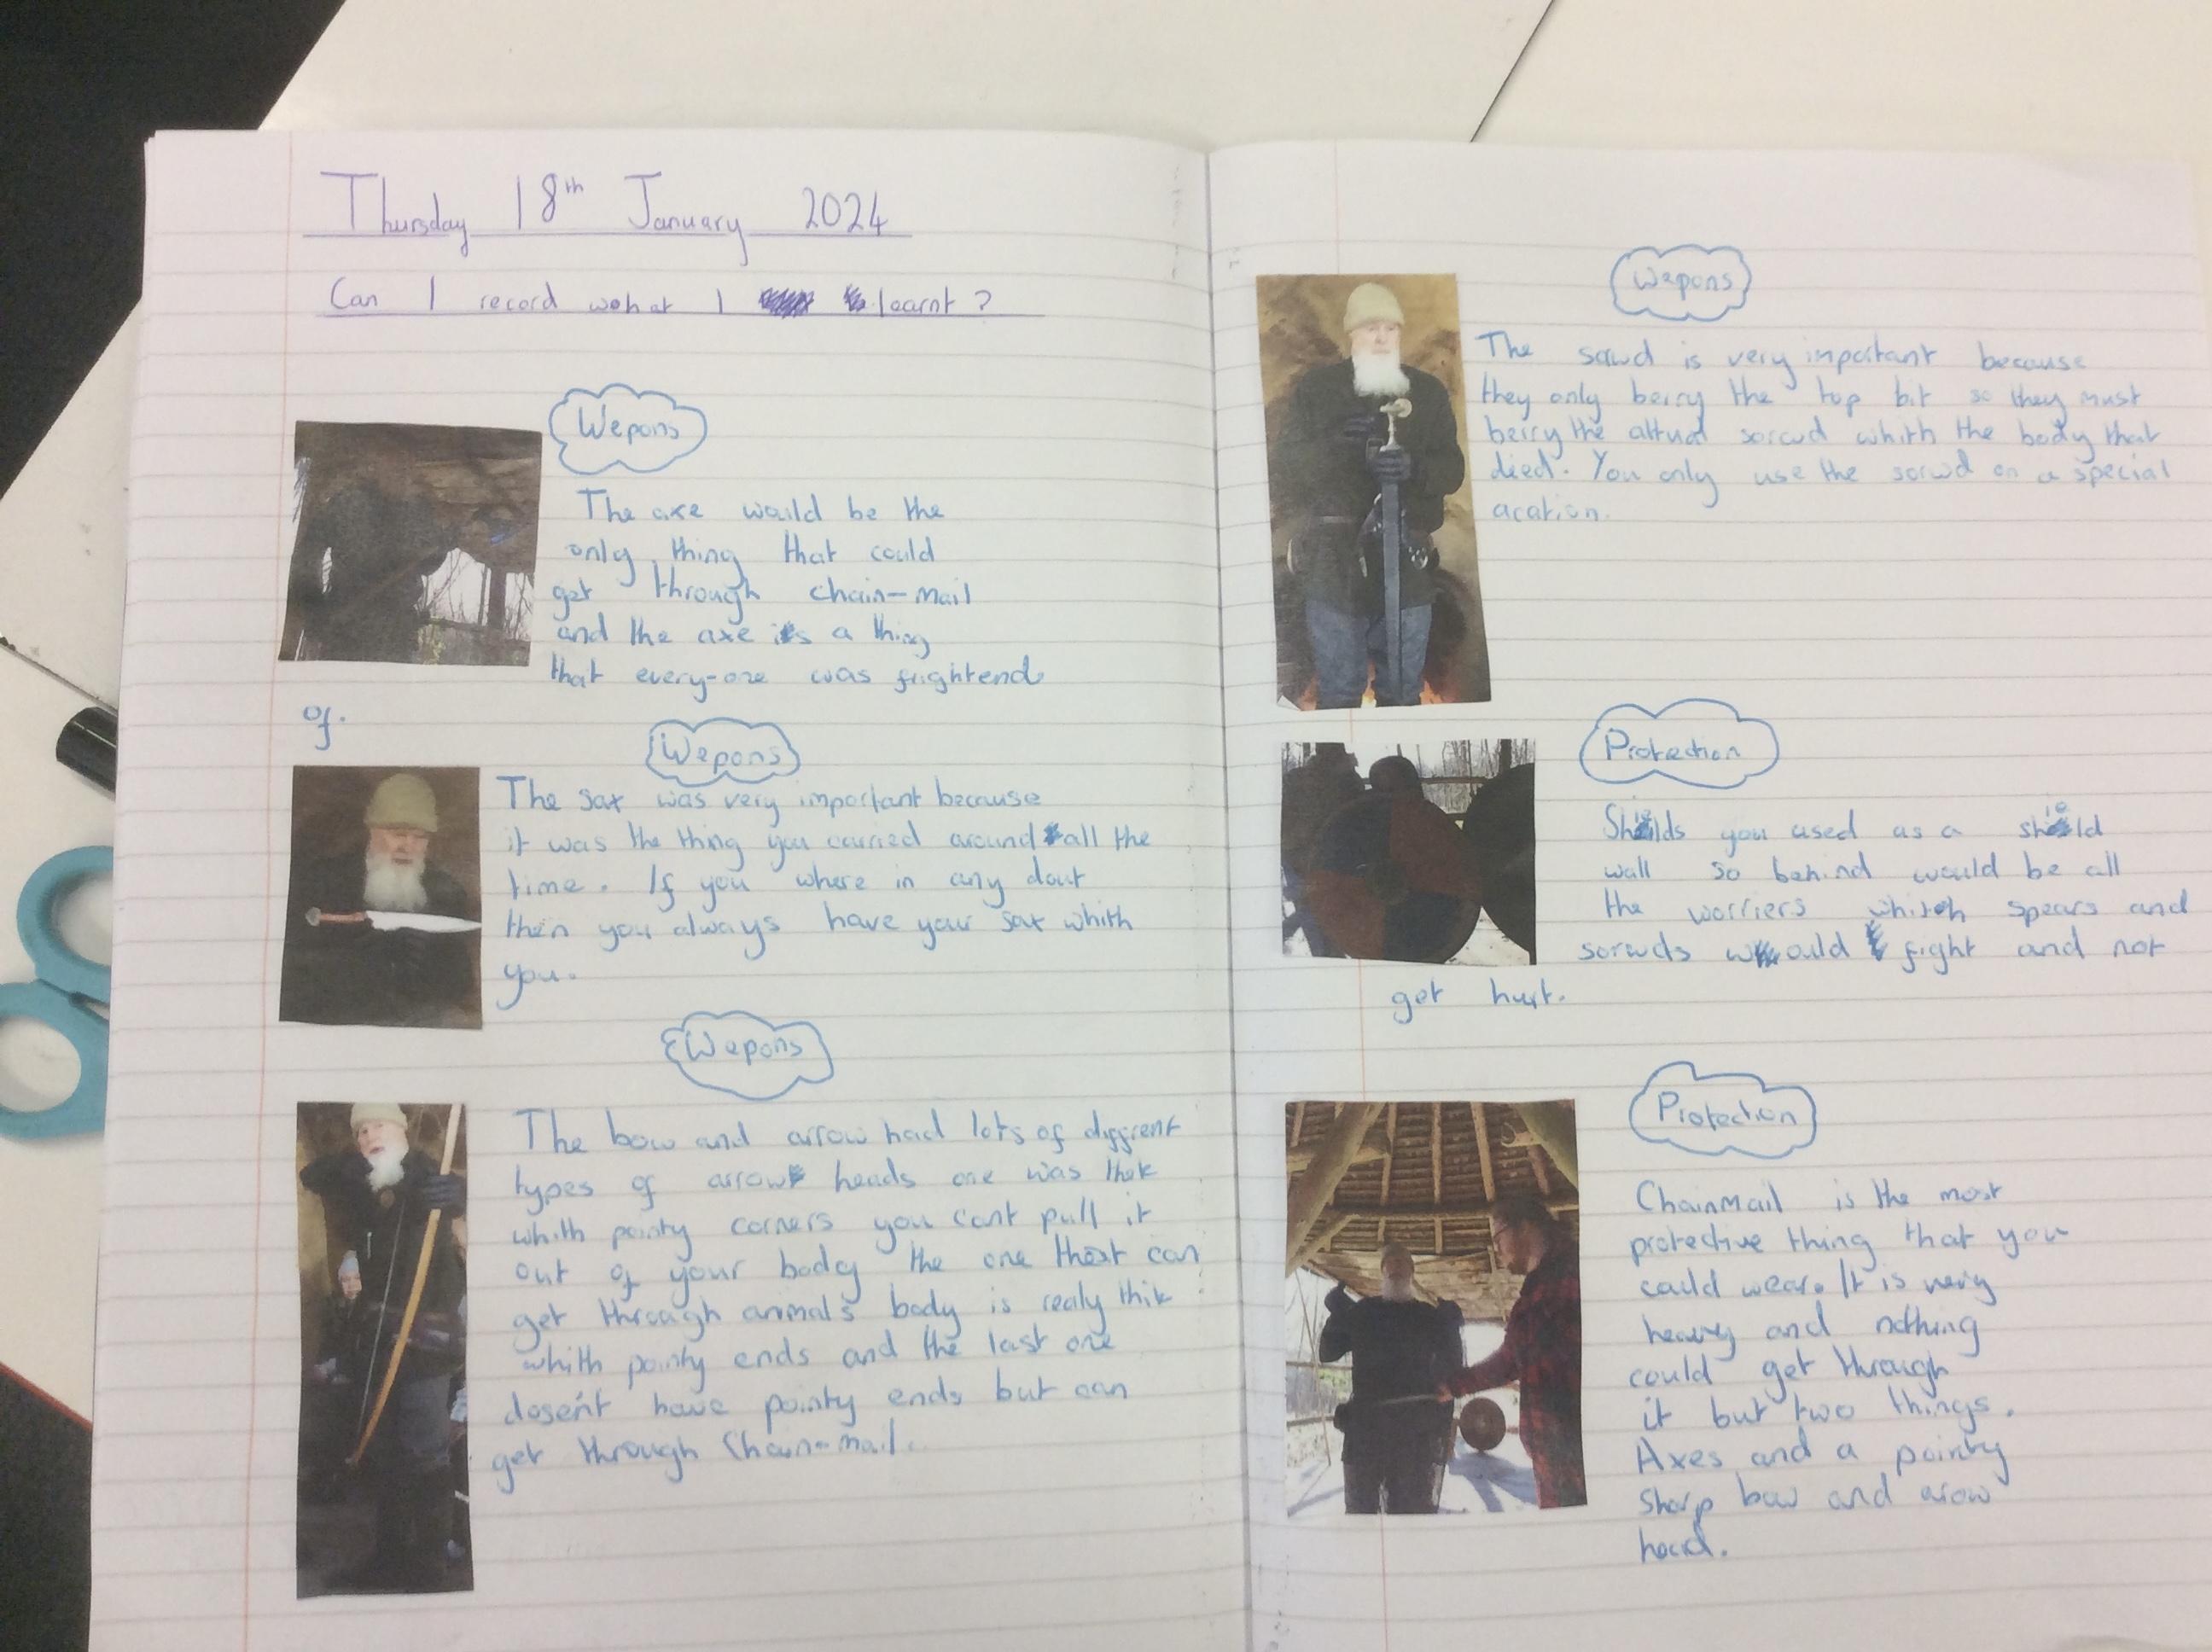 Thursday 18th January 2024
Can I record wohat I learnt?
Wepons
The axe would be the
only thing that could
get through chain-mail
and the axe is a thing
that every-one was frightend
of.
Wepons
The sax was very important because
it was the thing you carried around all the
time. If you where in any dout
then you always have your sax whith
you.
Wepons
The bow and arrow had lots of diffrent
types of arrow heads one was thik
whith pointy corners you cant pull it
out of your body the one that can
get through animals body is realy thik
whith pointy ends and the last one
dosen't have pointy ends but can
get through Chain-mail.
Wepons
The sorwd is very important because
they only berry the top bit so they must
berry the altual sorcwd whith the body that
died. You only use the sorwd on a special
acation.
Protection
Shields you used as a shield
wall so behind would be all
the worriers whith spears and
sorwds would fight and not
get hurt.
Protection
ChainMail is the most
protective thing that you
could wear. It is very
heavy and nothing
could get through
it but two things.
Axes and a pointy
sharp bow and arow
head.